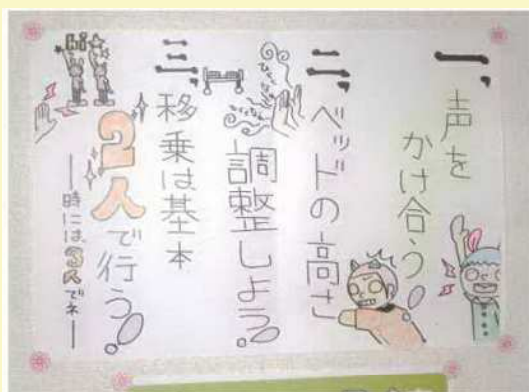 一、声を
かけ合う
二、ベッドの高さ
調整しよう!
三、移乗は基本
2人で行う!
―時には、3人でネ―
hi